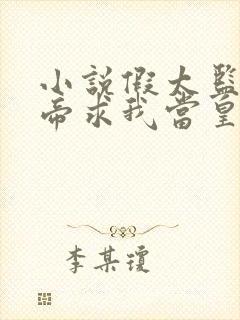 小說假太監
帝求我當皇
李某瓊